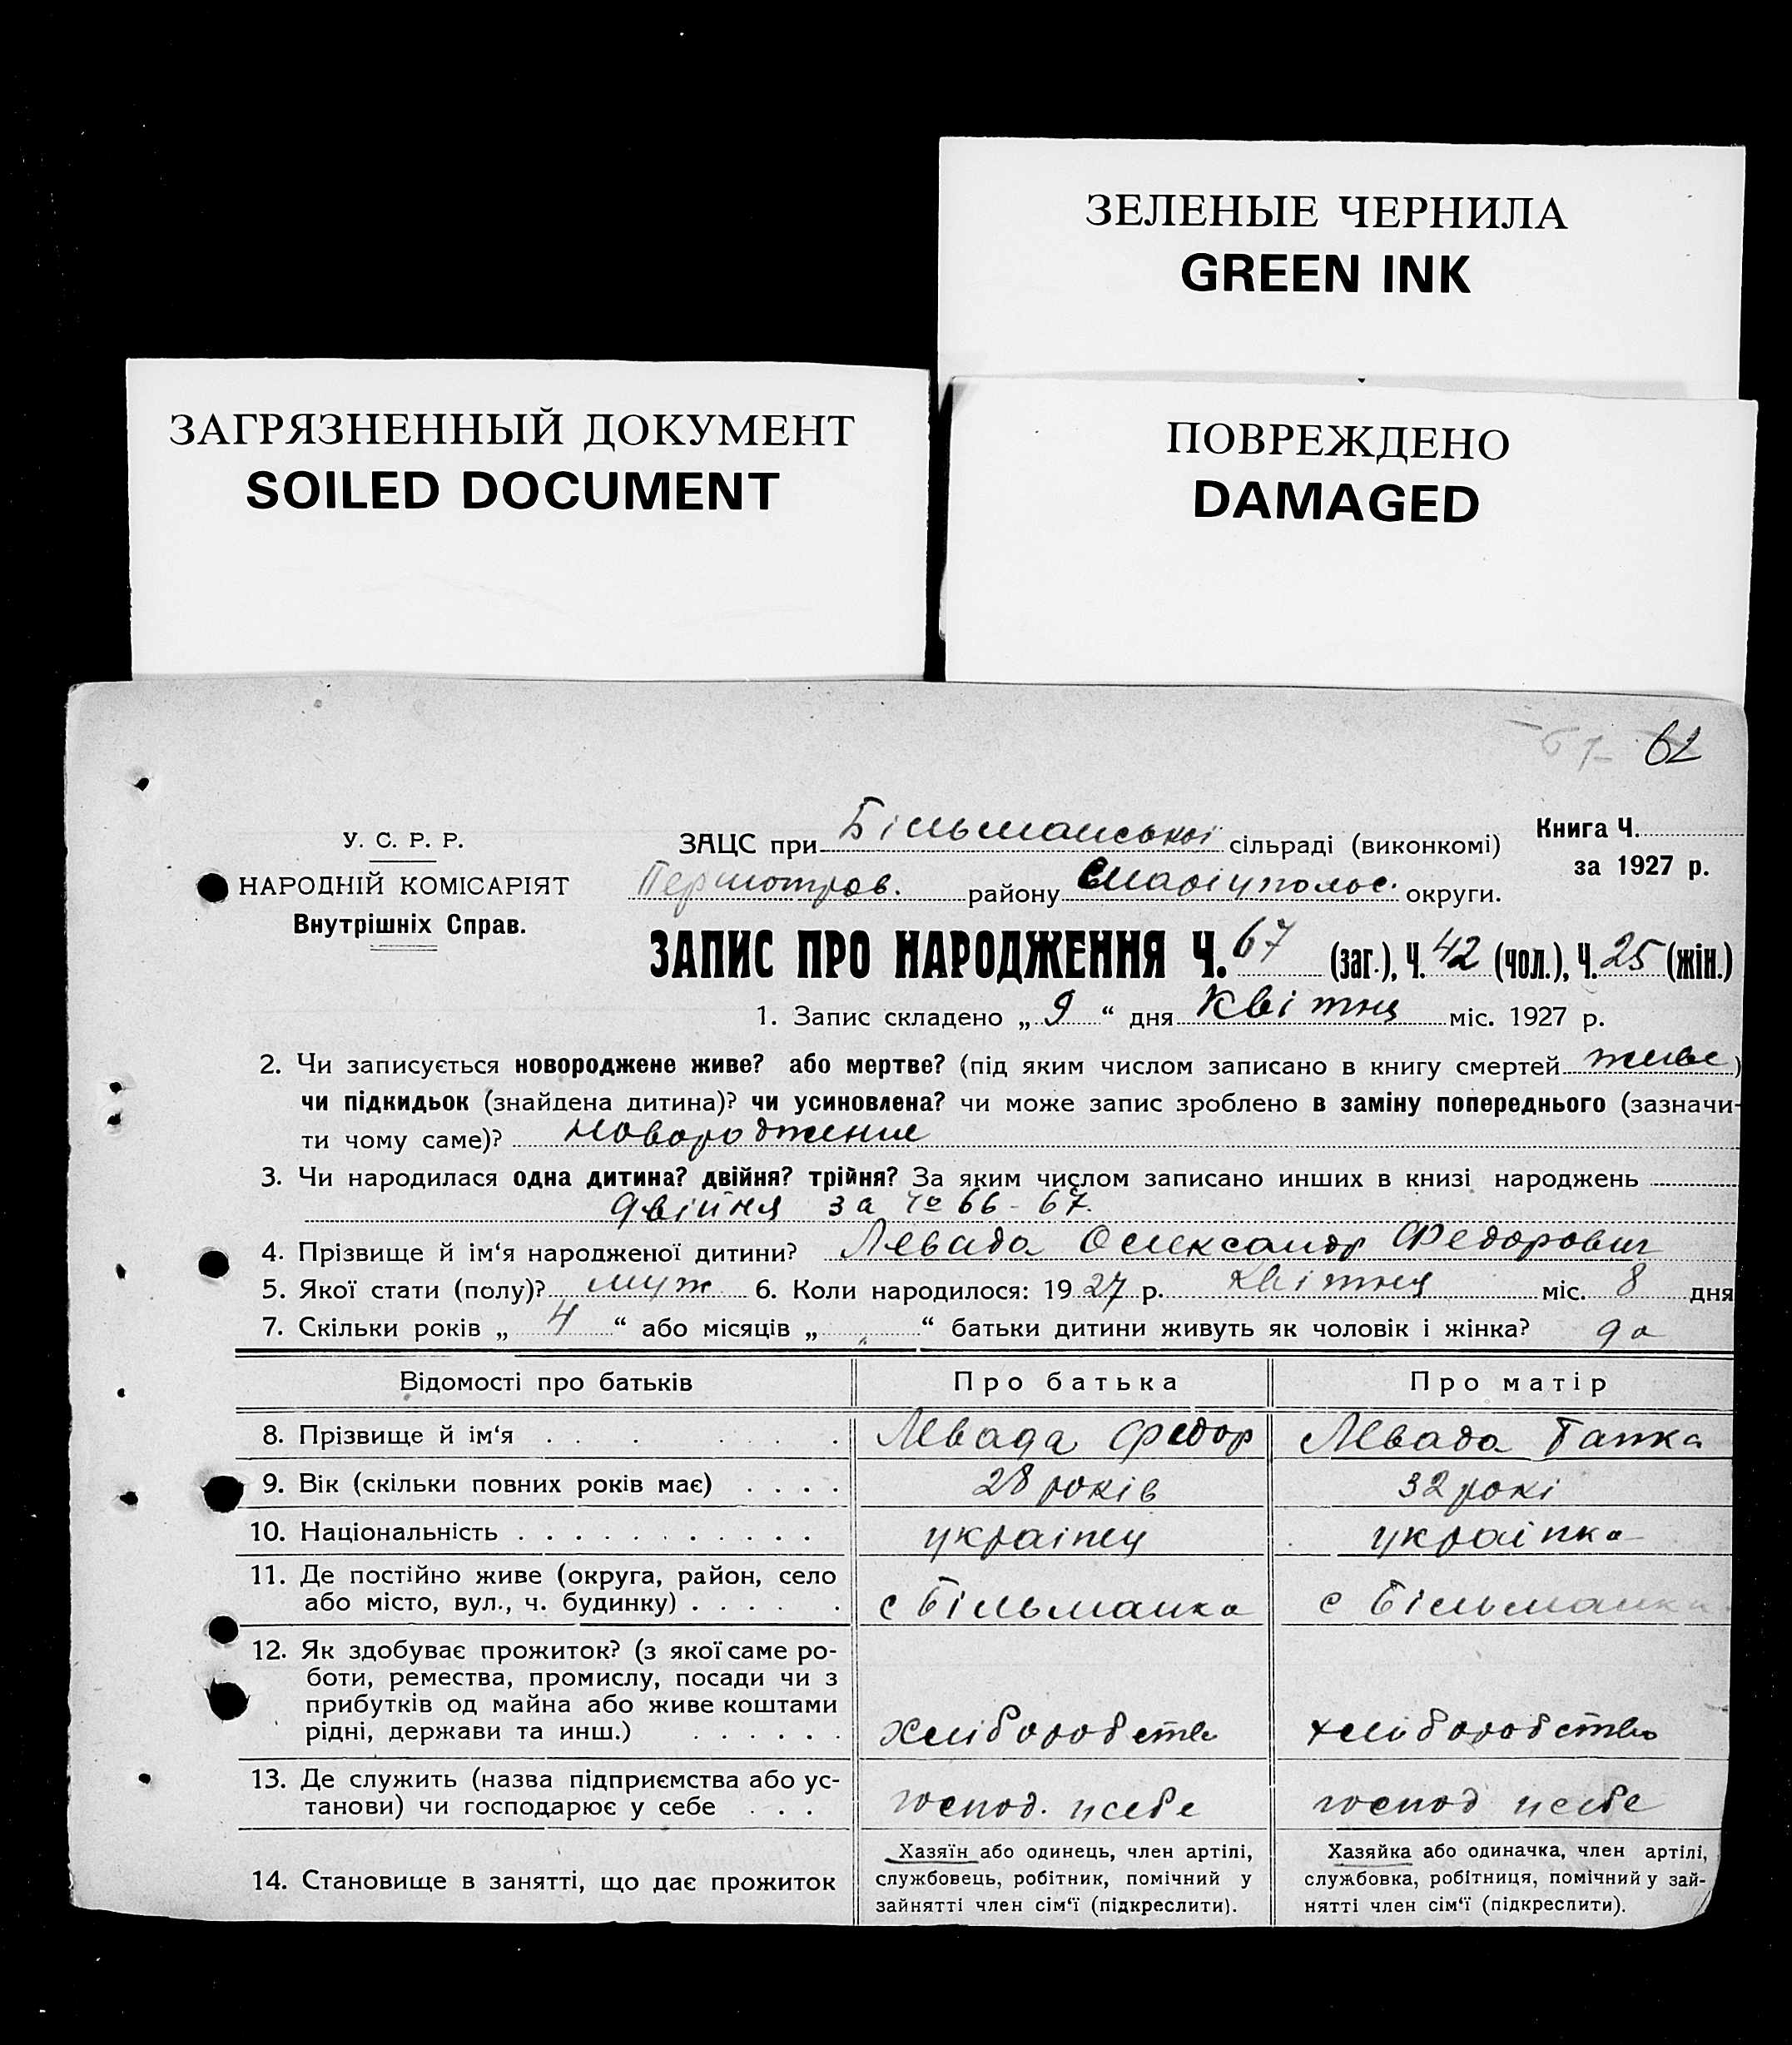 ЗЕЛЕНЫЕ ЧЕРНИЛА
GREEN INK
ЗАГРЯЗНЕННЫЙ ДОКУМЕНТ
SOILED DOCUMENT
ПОВРЕЖДЕНО
DAMAGED
62
У. С. Р. Р.
НАРОДНІЙ КОМІСАРІЯТ
Внутрішніх Справ.
ЗАЦС при Більманської сільраді (виконкомі)
Книга Ч.
за 1927 р.
Першотров. району Маріуполос. округи.
ЗАПИС ПРО НАРОДЖЕННЯ Ч. 67 (заг.), Ч. 42 (чол.), Ч. 25 (жін.)
1. Запис складено „ 9 “ дня Квітня міс. 1927 р.
2. Чи записується новороджене живе? або мертве? (під яким числом записано в книгу смертей живе)
чи підкидьок (знайдена дитина)? чи усиновлена? чи може запис зроблено в заміну попереднього (зазначи-
ти чому саме)? новородженне
3. Чи народилася одна дитина? двійня? трійня? За яким числом записано инших в книзі народжень
двійня за Чо 66 - 67.
4. Прізвище й ім‘я народженої дитини? Левада Олександр Федорович
5. Якої стати (полу)? муж 6. Коли народилося: 1927 р. квітня міс. 8 дня
7. Скільки років „ 4 “ або місяців „ „ “ батьки дитини живуть як чоловік і жінка? да
Відомості про батьків Про батька Про матір
8. Прізвище й ім‘я . . . . . . . Левада Федор Левада Ганка
9. Вік (скільки повних років має) . . . . 28 років 32 рокі
10. Національність . . . . . . . . . . . українц українка
11. Де постійно живе (округа, район, село
або місто, вул., ч. будинку) . . . . . с Більманка с Більманка
12. Як здобуває прожиток? (з якої саме ро-
боти, ремества, промислу, посади чи з
прибутків од майна або живе коштами
рідні, держави та инш.) . . . . . . хліборобство хліборобство
13. Де служить (назва підприємства або ус-
танови) чи господарює у себе . . . господ. усебе господ усебе
14. Становище в занятті, що дає прожиток
Хазяїн або одинець, член артілі,
службовець, робітник, помічний у
зайнятті член сім‘ї (підкреслити).
Хазяйка або одиначка, член артілі,
службовка, робітниця, помічний у зай-
нятті член сім‘ї (підкреслити).